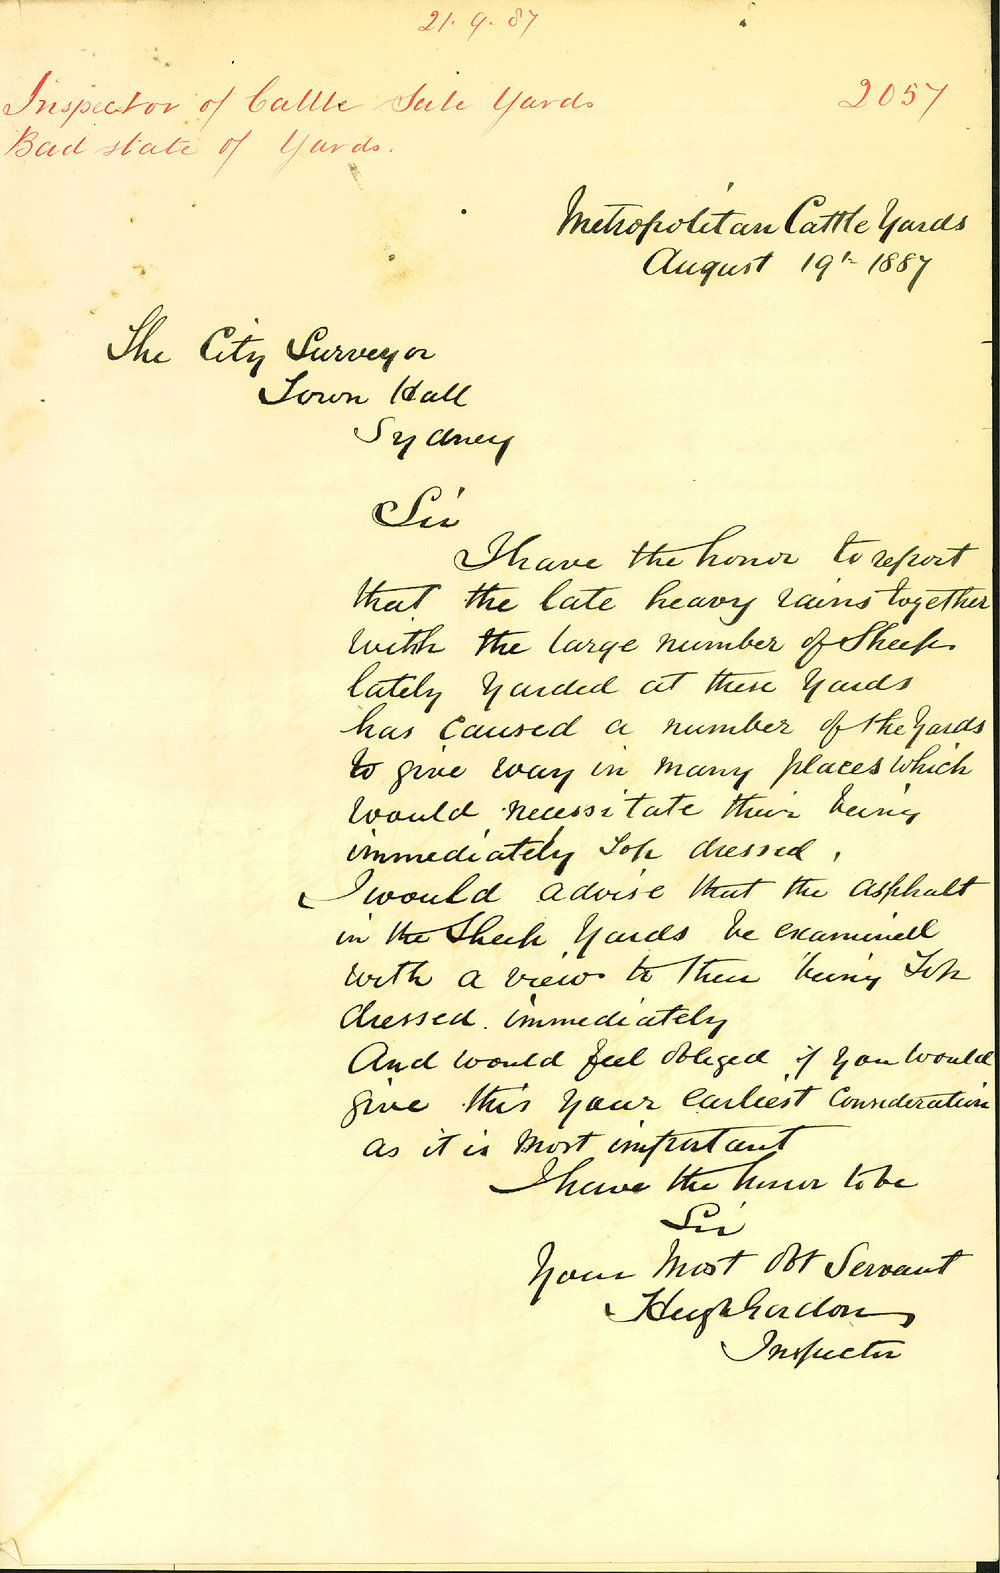 21. 9. 87
Inspector of Cattle Sale Yards 2057
Bad state of Yards.
Metropolitan Cattle Yards
August 19th 1887
The City Surveyor
Town Hall
Sydney
Sir
I have the honor to report
that the late heavy rains together
with the large number of Sheep
lately Yarded at these Yards
has caused a number of the Yards
to give way in many places which
would necessitate their being
immediately Top dressed,
I would advise that the asphalt
in the Sheep Yards be examined
with a view to their being Top
dressed immediately
And would feel obliged if you would
give this your earliest Consideration
as it is most important
I have the honor to be
Sir
Your Most Obt Servant
Hugh Gordon
Inspector